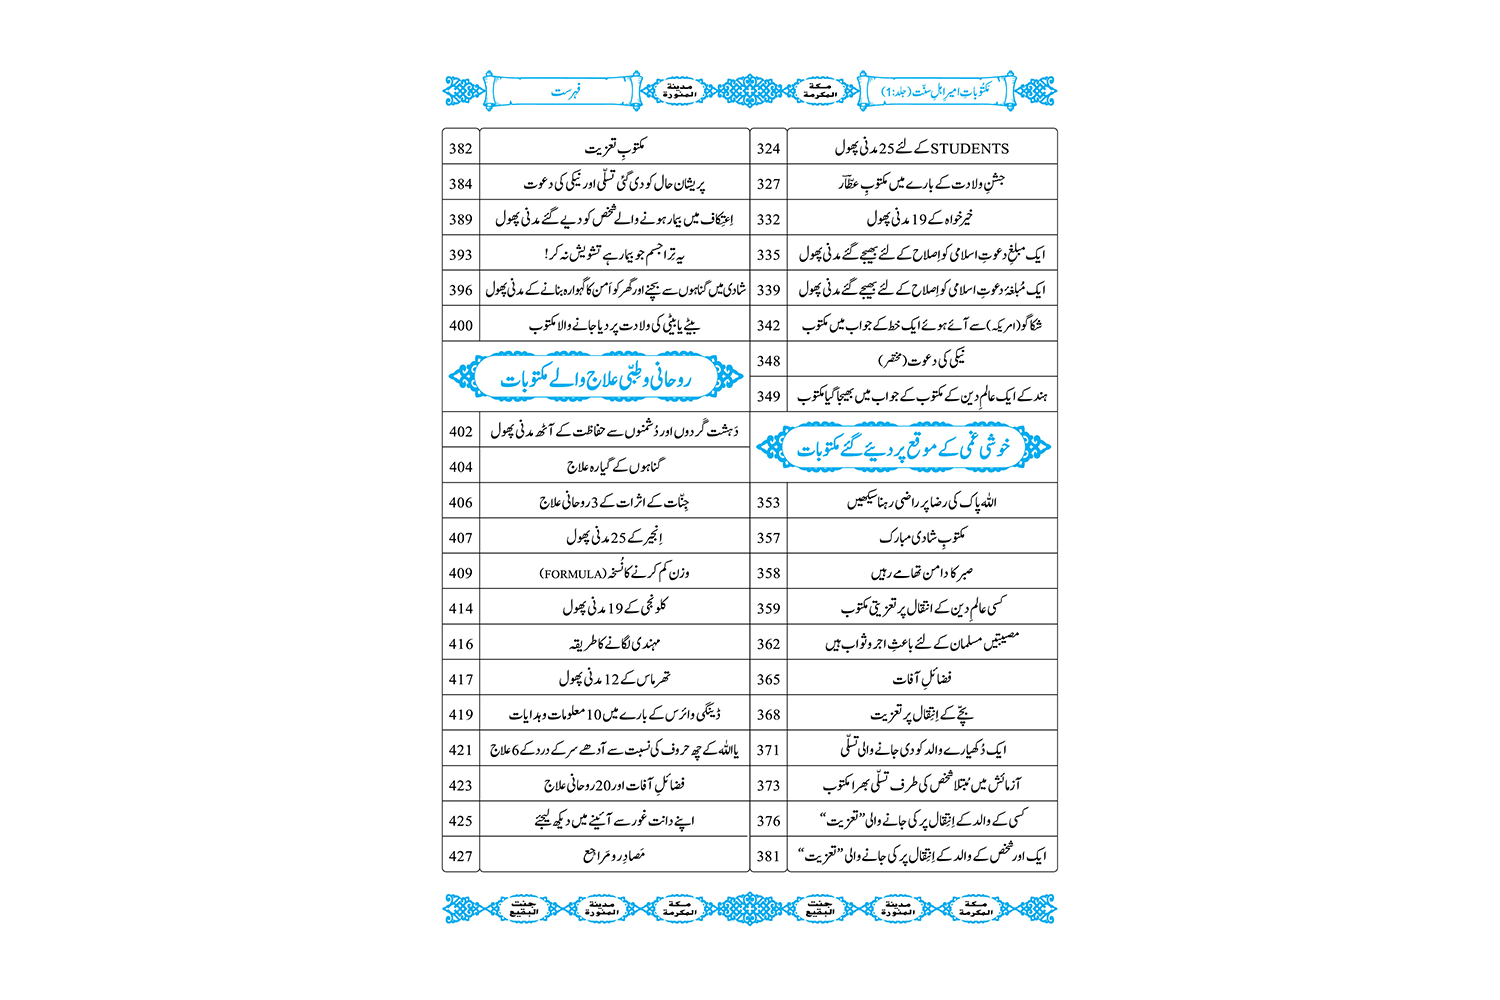 مکتوباتِ امیرِ اہلِ سنّت (جلد:1)
مكة المكرمة
مدينة المنورة
فہرست
STUDENTS کے لئے 25 مدنی پھول 324
جشنِ ولادت کے بارے میں مکتوبِ عطّار 327
خیر خواہ کے 19 مدنی پھول 332
ایک مبلغِ دعوتِ اسلامی کو اِصلاح کے لئے بھیجے گئے مدنی پھول 335
ایک مُبلغۂ دعوتِ اسلامی کو اِصلاح کے لئے بھیجے گئے مدنی پھول 339
شکاگو (امریکہ) سے آئے ہوئے ایک خط کے جواب میں مکتوب 342
نیکی کی دعوت (مختصر) 348
ہند کے ایک عالمِ دین کے مکتوب کے جواب میں بھیجا گیا مکتوب 349
خوشی غمی کے موقع پر دیئے گئے مکتوبات
اللہ پاک کی رضا پر راضی رہنا سیکھیں 353
مکتوبِ شادی مبارک 357
صبر کا دامن تھامے رہیں 358
کسی عالمِ دین کے انتقال پر تعزیتی مکتوب 359
مصیبتیں مسلمان کے لئے باعثِ اجر و ثواب ہیں 362
فضائلِ آفات 365
بچّے کے اِنتِقال پر تعزیت 368
ایک دُکھیارے والد کو دی جانے والی تسلّی 371
آزمائش میں مُبتلا شخص کی طرف تسلّی بھرا مکتوب 373
کسی کے والد کے اِنتِقال پر کی جانے والی ”تعزیت“ 376
ایک اور شخص کے والد کے اِنتِقال پر کی جانے والی ”تعزیت“ 381
مکتوبِ تعزیت 382
پریشان حال کو دی گئی تسلّی اور نیکی کی دعوت 384
اِعتِکاف میں بیمار ہونے والے شخص کو دیے گئے مدنی پھول 389
یہ تِرا جسم جو بیمار ہے تشویش نہ کر! 393
شادی میں گناہوں سے بچنے اور گھر کو اَمن کا گہوارہ بنانے کے مدنی پھول 396
بیٹے یا بیٹی کی ولادت پر دیا جانے والا مکتوب 400
روحانی و طِبّی علاج والے مکتوبات
دَہشت گردوں اور دُشمنوں سے حفاظت کے آٹھ مدنی پھول 402
گناہوں کے گیارہ علاج 404
جِنّات کے اثرات کے 3 روحانی علاج 406
اِنجیر کے 25 مدنی پھول 407
وزن کم کرنے کا نُسخہ (FORMULA) 409
کلونجی کے 19 مدنی پھول 414
مہندی لگانے کا طریقہ 416
تھرماس کے 12 مدنی پھول 417
ڈینگی وائرس کے بارے میں 10 معلومات و ہدایات 419
یااللہ کے چھ حروف کی نسبت سے آدھے سر کے درد کے 6 علاج 421
فضائلِ آفات اور 20 روحانی علاج 423
اپنے دانت غور سے آئینے میں دیکھ لیجئے 425
مَصادِر و مَراجع 427
مكة المكرمة
مدينة المنورة
جنت البقيع
مكة المكرمة
مدينة المنورة
جنت البقيع